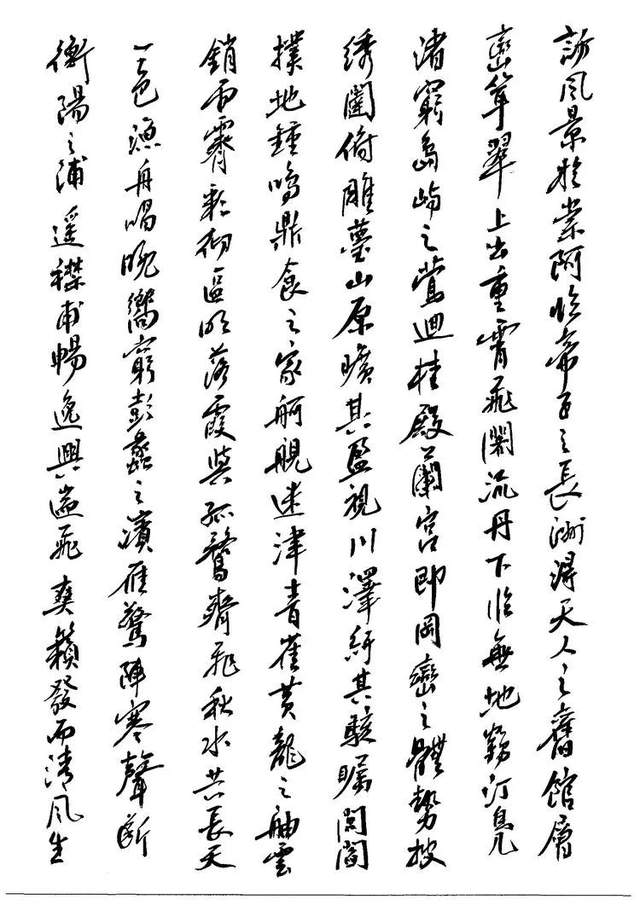 訪風景於崇阿臨帝子之長洲得天人之舊館層
巒聳翠上出重霄飛閣流丹下臨無地鶴汀鳧
渚窮島嶼之縈迴桂殿蘭宮即岡巒之體勢披
綉闥俯雕甍山原曠其盈視川澤紆其駭矚閭閻
撲地鍾鳴鼎食之家舸艦迷津青雀黃龍之舳雲
銷雨霽彩徹區明落霞與孤鶩齊飛秋水共長天
一色漁舟唱晚響窮彭蠡之濱雁驚陣寒聲斷
衡陽之浦遥襟甫暢逸興遄飛爽籟發而清風生